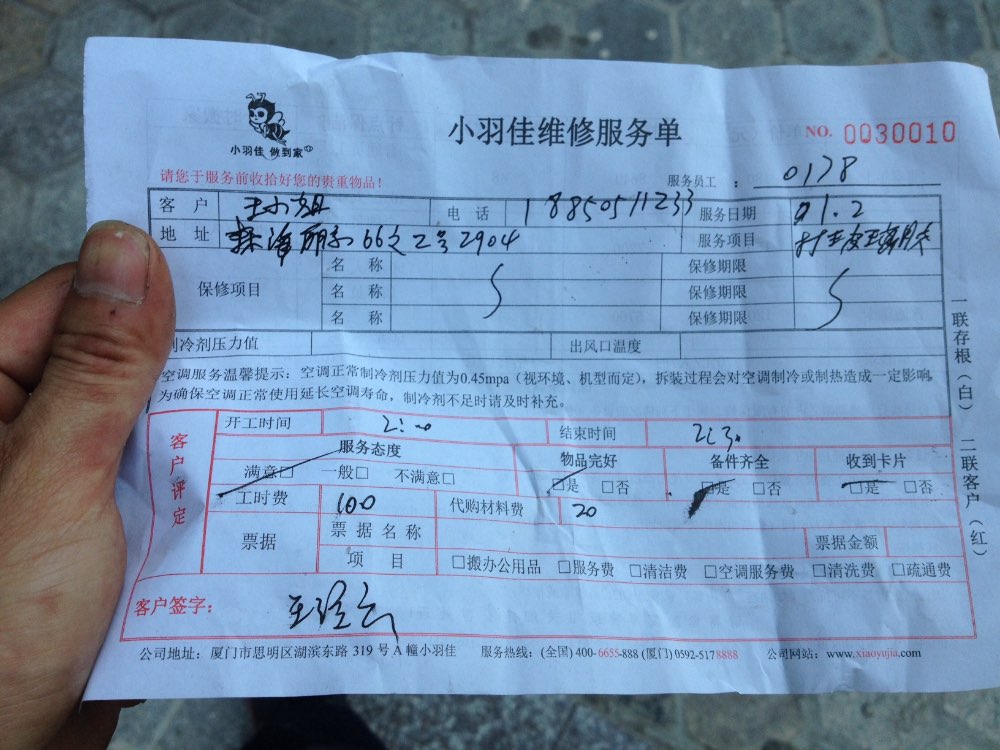 小羽佳 做到家
小羽佳维修服务单
NO. 0030010
请您于服务前收拾好您的贵重物品！
服务员工 ： 0178
客 户 王小姐 电 话 18850511233 服务日期 1.2
地 址 66之2号2904 服务项目
保修项目
名 称 保修期限
名 称 保修期限
名 称 保修期限
制冷剂压力值 出风口温度
空调服务温馨提示：空调正常制冷剂压力值为0.45mpa（视环境、机型而定），拆装过程会对空调制冷或制热造成一定影响，
为确保空调正常使用延长空调寿命，制冷剂不足时请及时补充。
客户评定
开工时间 2:00 结束时间 2:30
服务态度 物品完好 备件齐全 收到卡片
满意□ 一般□ 不满意□ □是 □否 □是 □否 □是 □否
工时费 100 代购材料费 20
票据 票 据 名 称 票据金额
项 目 □搬办公用品 □服务费 □清洁费 □空调服务费 □清洗费 □疏通费
客户签字：
公司地址：厦门市思明区湖滨东路 319 号 A 幢小羽佳 服务热线：(全国) 400-6655-888 (厦门) 0592-5178888 公司网站：www.xiaoyujia.com
一联存根（白） 二联客户（红）